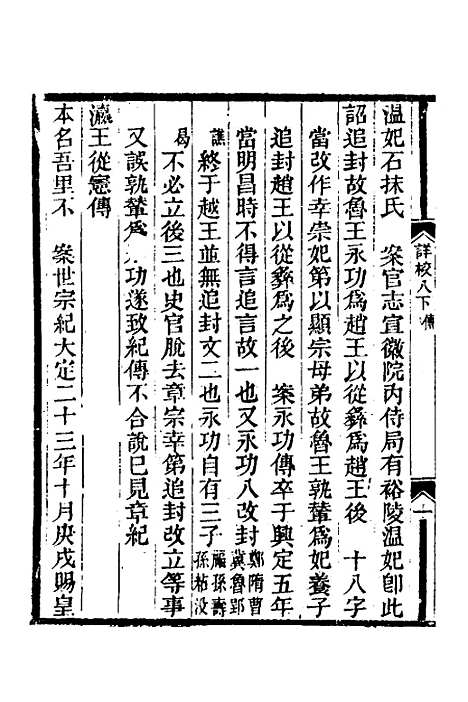 温妃石抹氏　案官志宣徽院内侍局有裕陵温妃卽此
詔追封故魯王永功爲趙王以從彝爲趙王後　十八字
當改作幸崇妃第以顯宗母弟故魯王孰輦爲妃養子
追封趙王以從彝爲之後　案永功傳卒于興定五年
當明昌時不得言追言故一也又永功八改封鄭隋曹冀魯郢
譙終于越王並無追封文二也永功自有三子福孫壽孫粘没
曷不必立後三也史官脫去章宗幸第追封改立等事
又誤孰輦爲永功遂致紀傳不合說已見章紀
瀛王從憲傳
本名吾里不　案世宗紀大定二十三年十月庚戌賜皇
詳校八下　傳
一